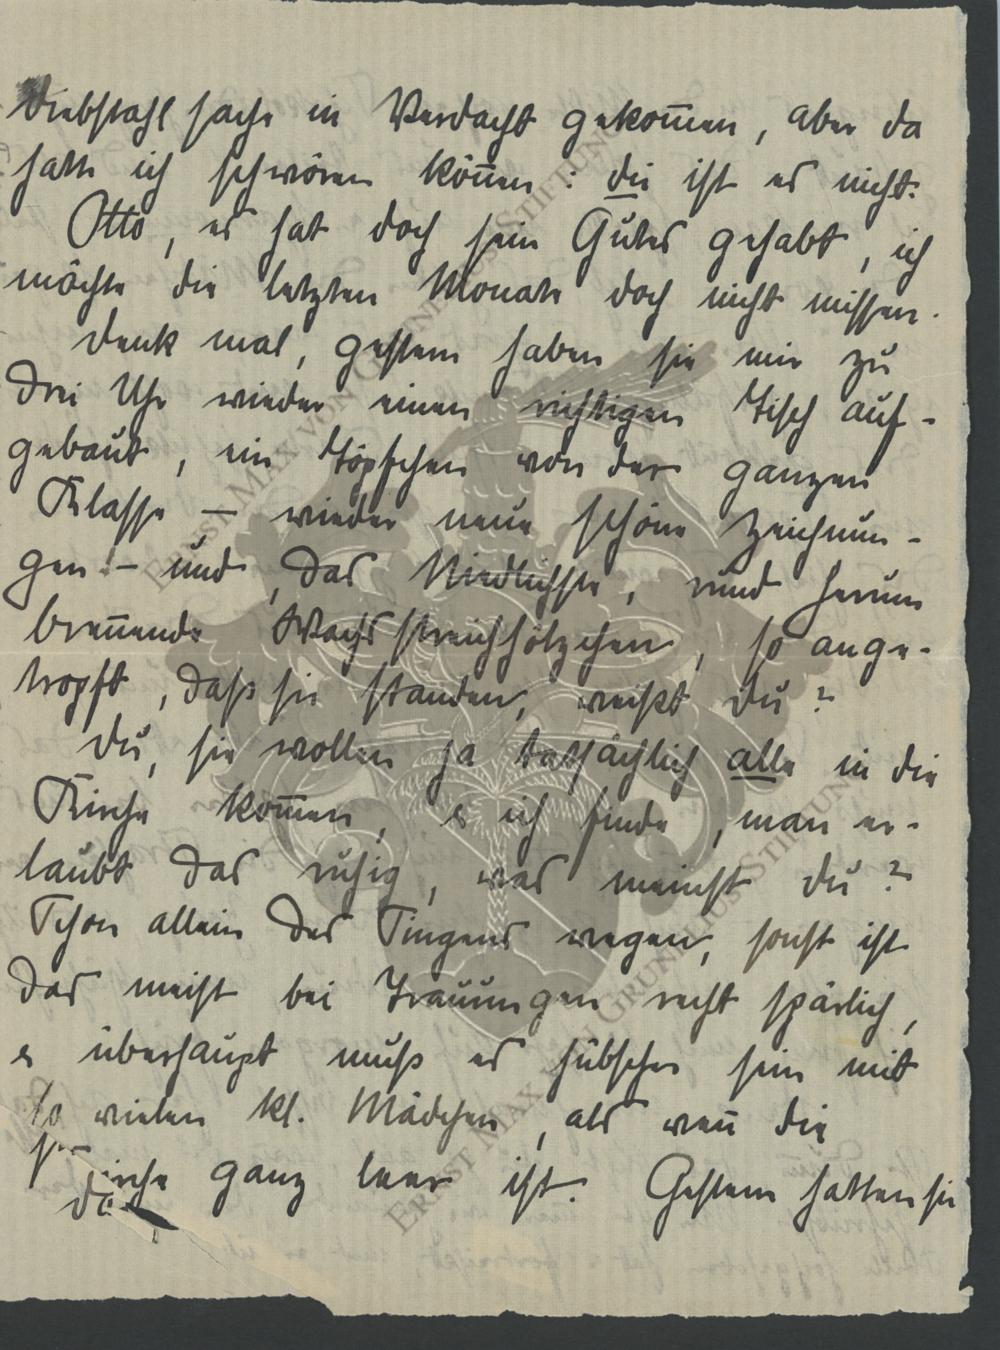 Diebstahlsache in Verdacht gekom̅en, aber da
hatte ich schwören kön̅en: die ist es nicht.
Otto, es hat doch sein Gutes gehabt, ich
möchte die letzten Monate doch nicht missen.
Denk mal, gestern haben sie mir zu
drei Uhr wieder einen richtigen Tisch auf-
gebaut, ein Töpfchen von der ganzen
Klasse – wieder neue schöne Zeichnun-
gen! – und, das Niedlichste, rund herum
bren̅ende Wachsstreichhölzchen, so ange-
tropft, daß sie standen, weißt du?
Du, sie wollen ja tatsächlich alle in die
Kirche kom̅en, & ich finde, man er-
laubt das ruhig, was meinst du?
Schon allein des Singens wegen, sonst ist
das meist bei Trauungen recht spärlich,
& überhaupt muß es hübscher sein mit
so vielen kl. Mädchen, als wen̅ die
Kirche ganz leer ist. Gestern hatten sie
ERNST MAX VON GRUNELIUS-STIFTUNG
ERNST MAX VON GRUNELIUS-STIFTUNG